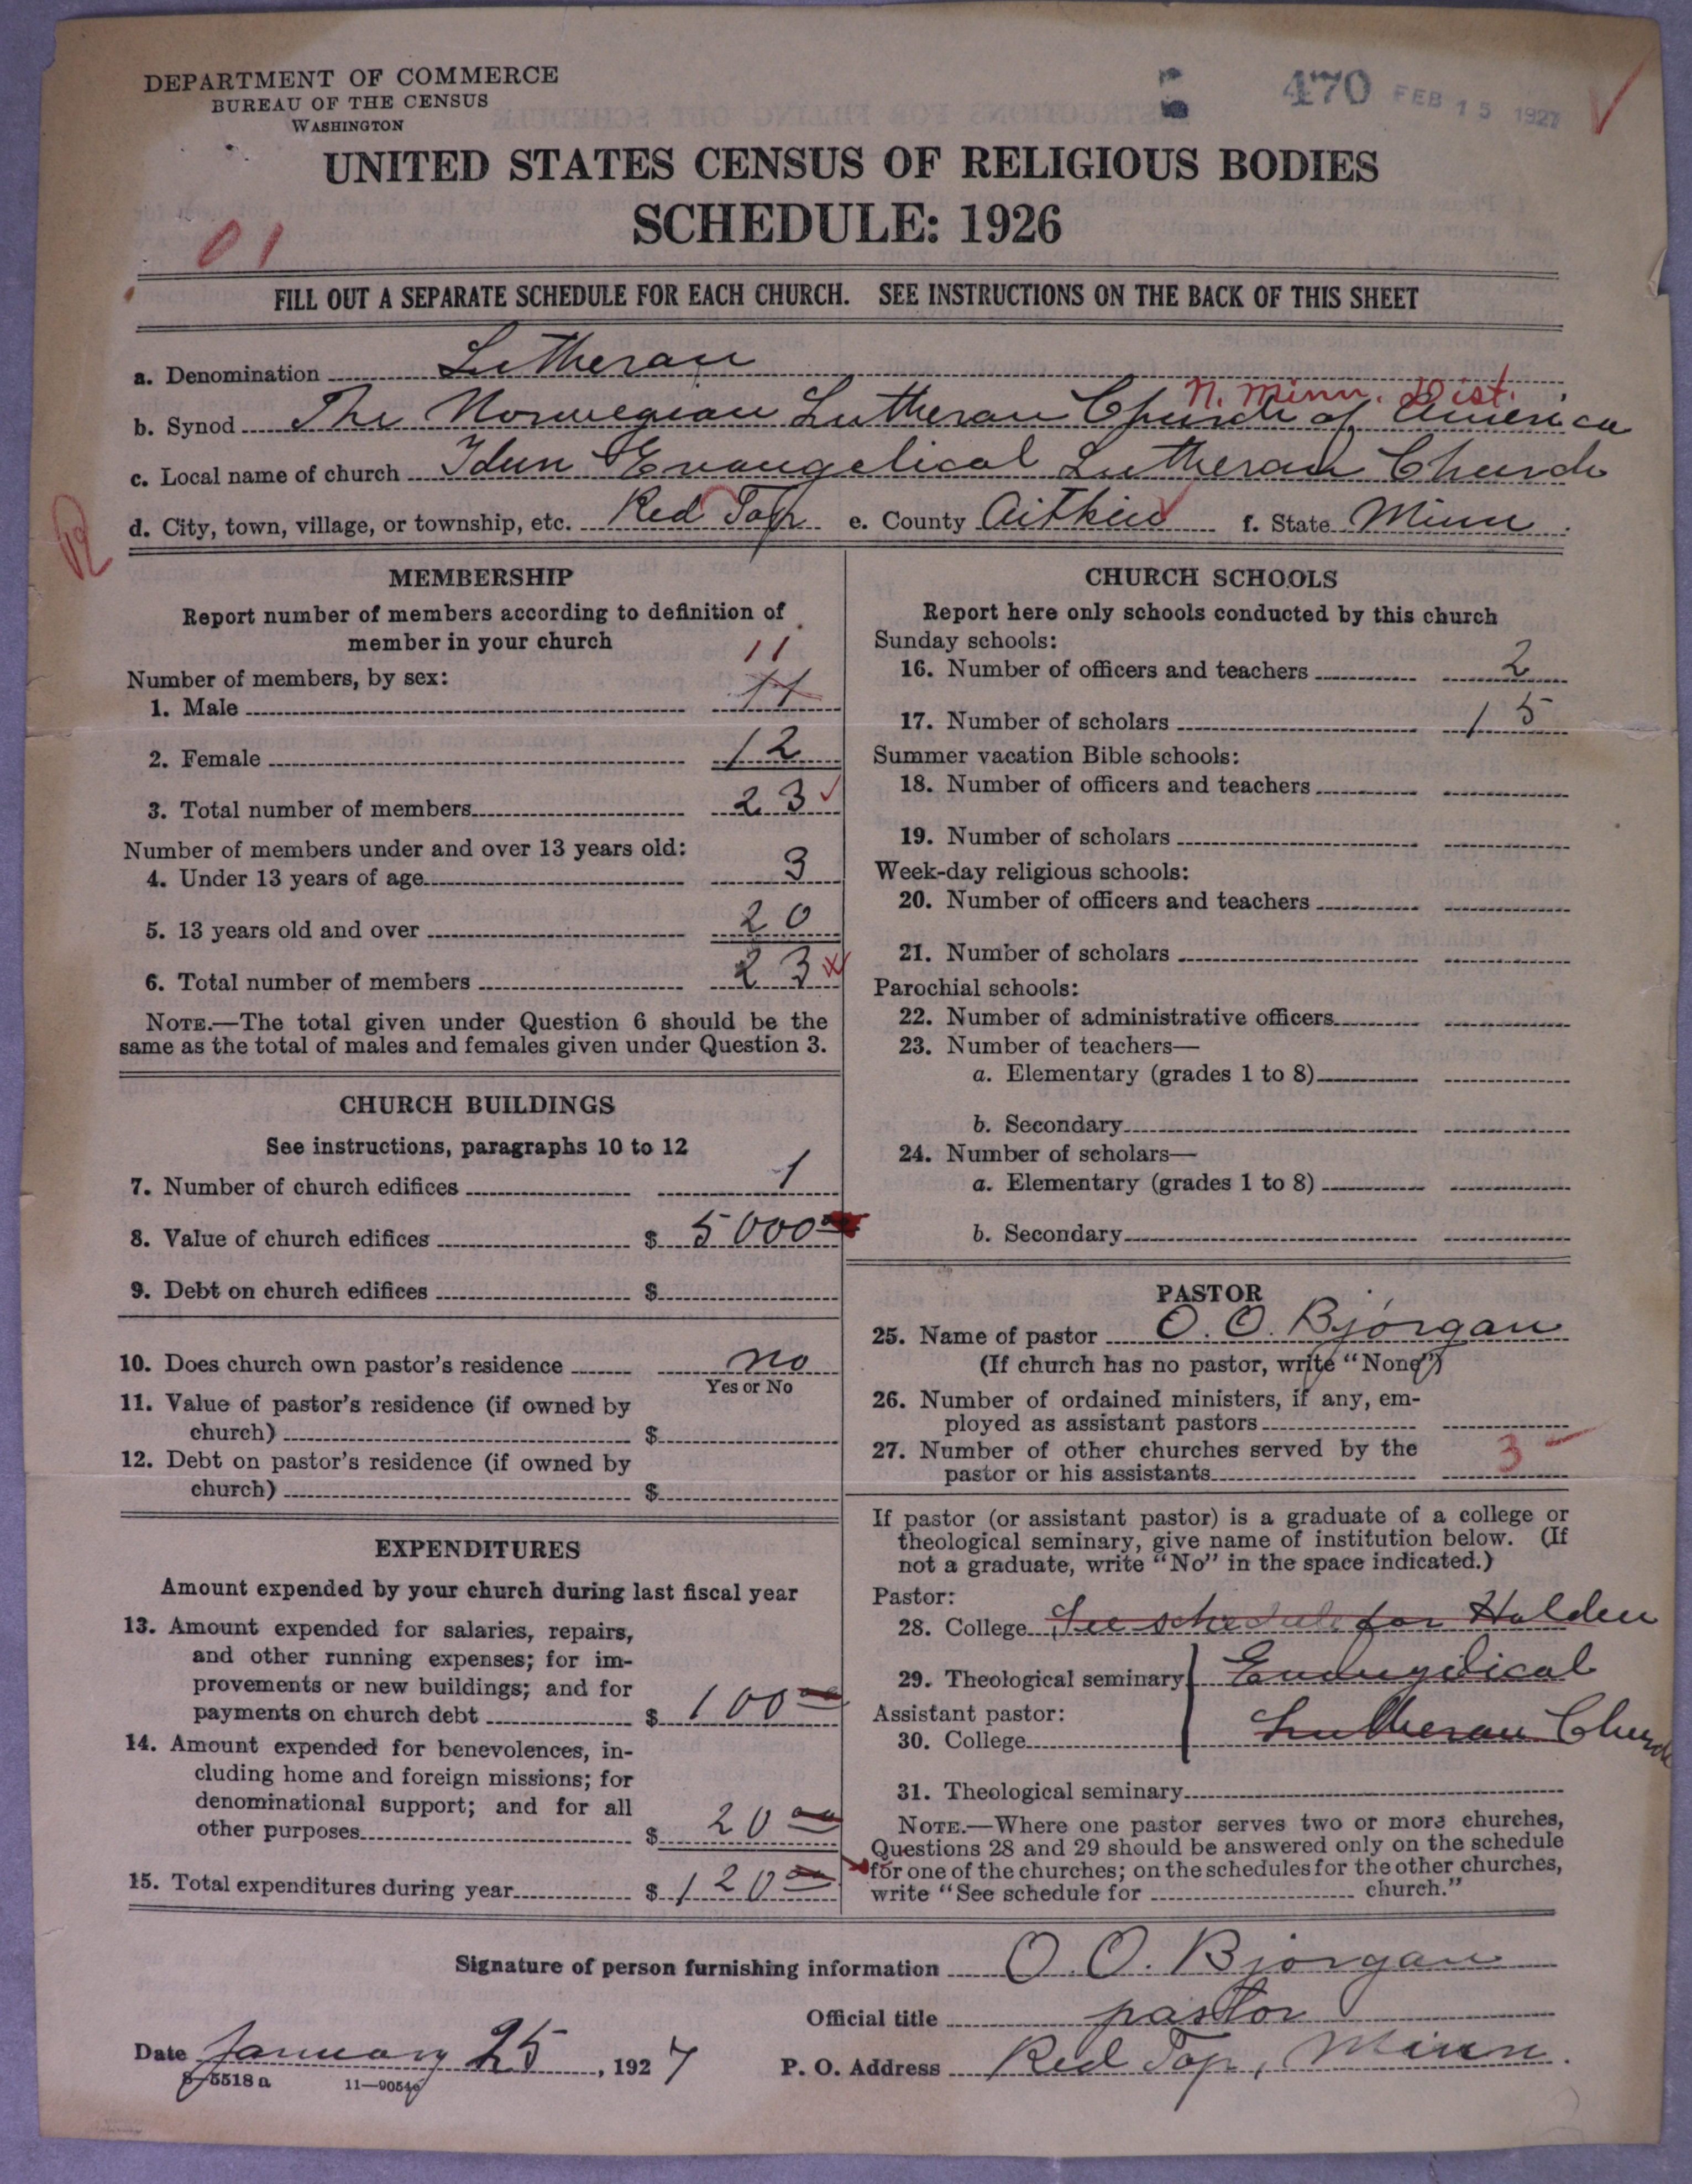 DEPARTMENT OF COMMERCE
BUREAU OF THE CENSUS
WASHINGTON
470 FEB 15 1927
UNITED STATES CENSUS OF RELIGIOUS BODIES
SCHEDULE: 1926
01
FILL OUT A SEPARATE SCHEDULE FOR EACH CHURCH. SEE INSTRUCTIONS ON THE BACK OF THIS SHEET
a. Denomination Lutheran
N. Minn. Dist.
b. Synod The Norwegian Lutheran Church of America
c. Local name of church Idun Evangelical Lutheran Church
d. City, town, village, or township, etc. Red Top e. County Aitkin f. State Minn.
MEMBERSHIP
Report number of members according to definition of
member in your church
11
Number of members, by sex:
1. Male 11
2. Female 12
3. Total number of members 23
Number of members under and over 13 years old:
4. Under 13 years of age 3
5. 13 years old and over 20
6. Total number of members 23
NOTE.—The total given under Question 6 should be the
same as the total of males and females given under Question 3.
CHURCH BUILDINGS
See instructions, paragraphs 10 to 12
7. Number of church edifices 1
8. Value of church edifices $ 5000 00
9. Debt on church edifices $
10. Does church own pastor's residence no
Yes or No
11. Value of pastor's residence (if owned by
church) $
12. Debt on pastor's residence (if owned by
church) $
EXPENDITURES
Amount expended by your church during last fiscal year
13. Amount expended for salaries, repairs,
and other running expenses; for im-
provements or new buildings; and for
payments on church debt $ 100 00
14. Amount expended for benevolences, in-
cluding home and foreign missions; for
denominational support; and for all
other purposes $ 20 00
15. Total expenditures during year $ 120 00
CHURCH SCHOOLS
Report here only schools conducted by this church
Sunday schools:
16. Number of officers and teachers 2
17. Number of scholars 15
Summer vacation Bible schools:
18. Number of officers and teachers
19. Number of scholars
Week-day religious schools:
20. Number of officers and teachers
21. Number of scholars
Parochial schools:
22. Number of administrative officers
23. Number of teachers—
a. Elementary (grades 1 to 8)
b. Secondary
24. Number of scholars—
a. Elementary (grades 1 to 8)
b. Secondary
PASTOR
25. Name of pastor O. O. Bjorgan
(If church has no pastor, write "None")
26. Number of ordained ministers, if any, em-
ployed as assistant pastors
27. Number of other churches served by the
pastor or his assistants 3
If pastor (or assistant pastor) is a graduate of a college or
theological seminary, give name of institution below. (If
not a graduate, write "No" in the space indicated.)
Pastor:
28. College See schedule for Holden
29. Theological seminary Evangelical
Assistant pastor:
30. College Lutheran Church
31. Theological seminary
NOTE.—Where one pastor serves two or more churches,
Questions 28 and 29 should be answered only on the schedule
for one of the churches; on the schedules for the other churches,
write "See schedule for church."
Signature of person furnishing information O. O. Bjorgan
Official title pastor
Date January 25, 1927 P. O. Address Red Top, Minn.
8—5518 a 11—9054